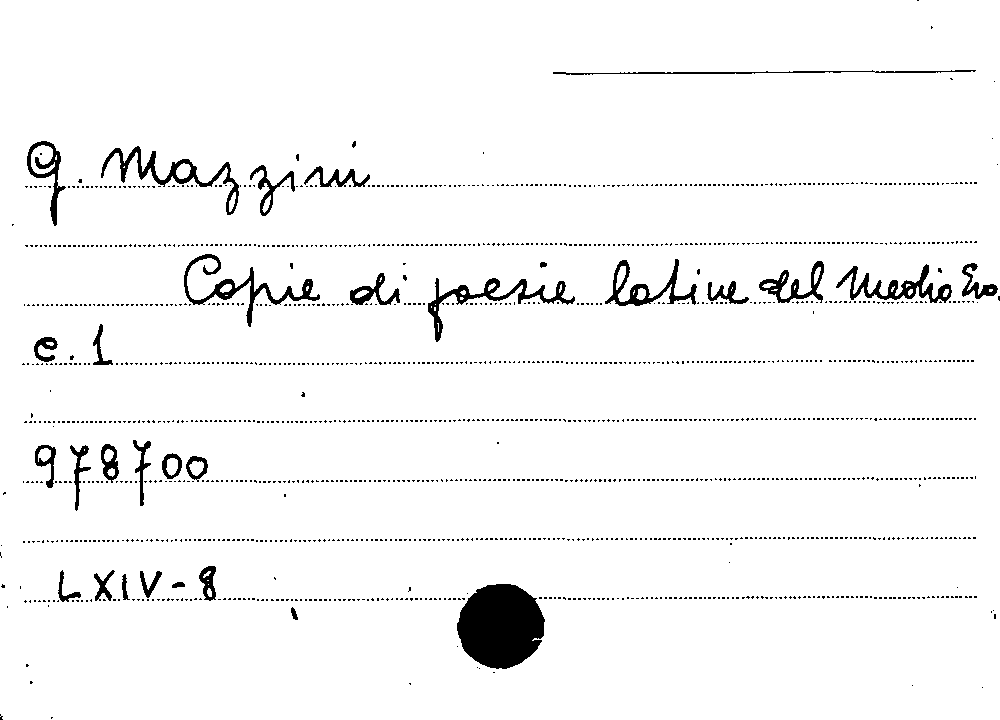 G. Mazzini
Copie di poesie latine del Medio Evo.
c. 1
978700
LXIV-8